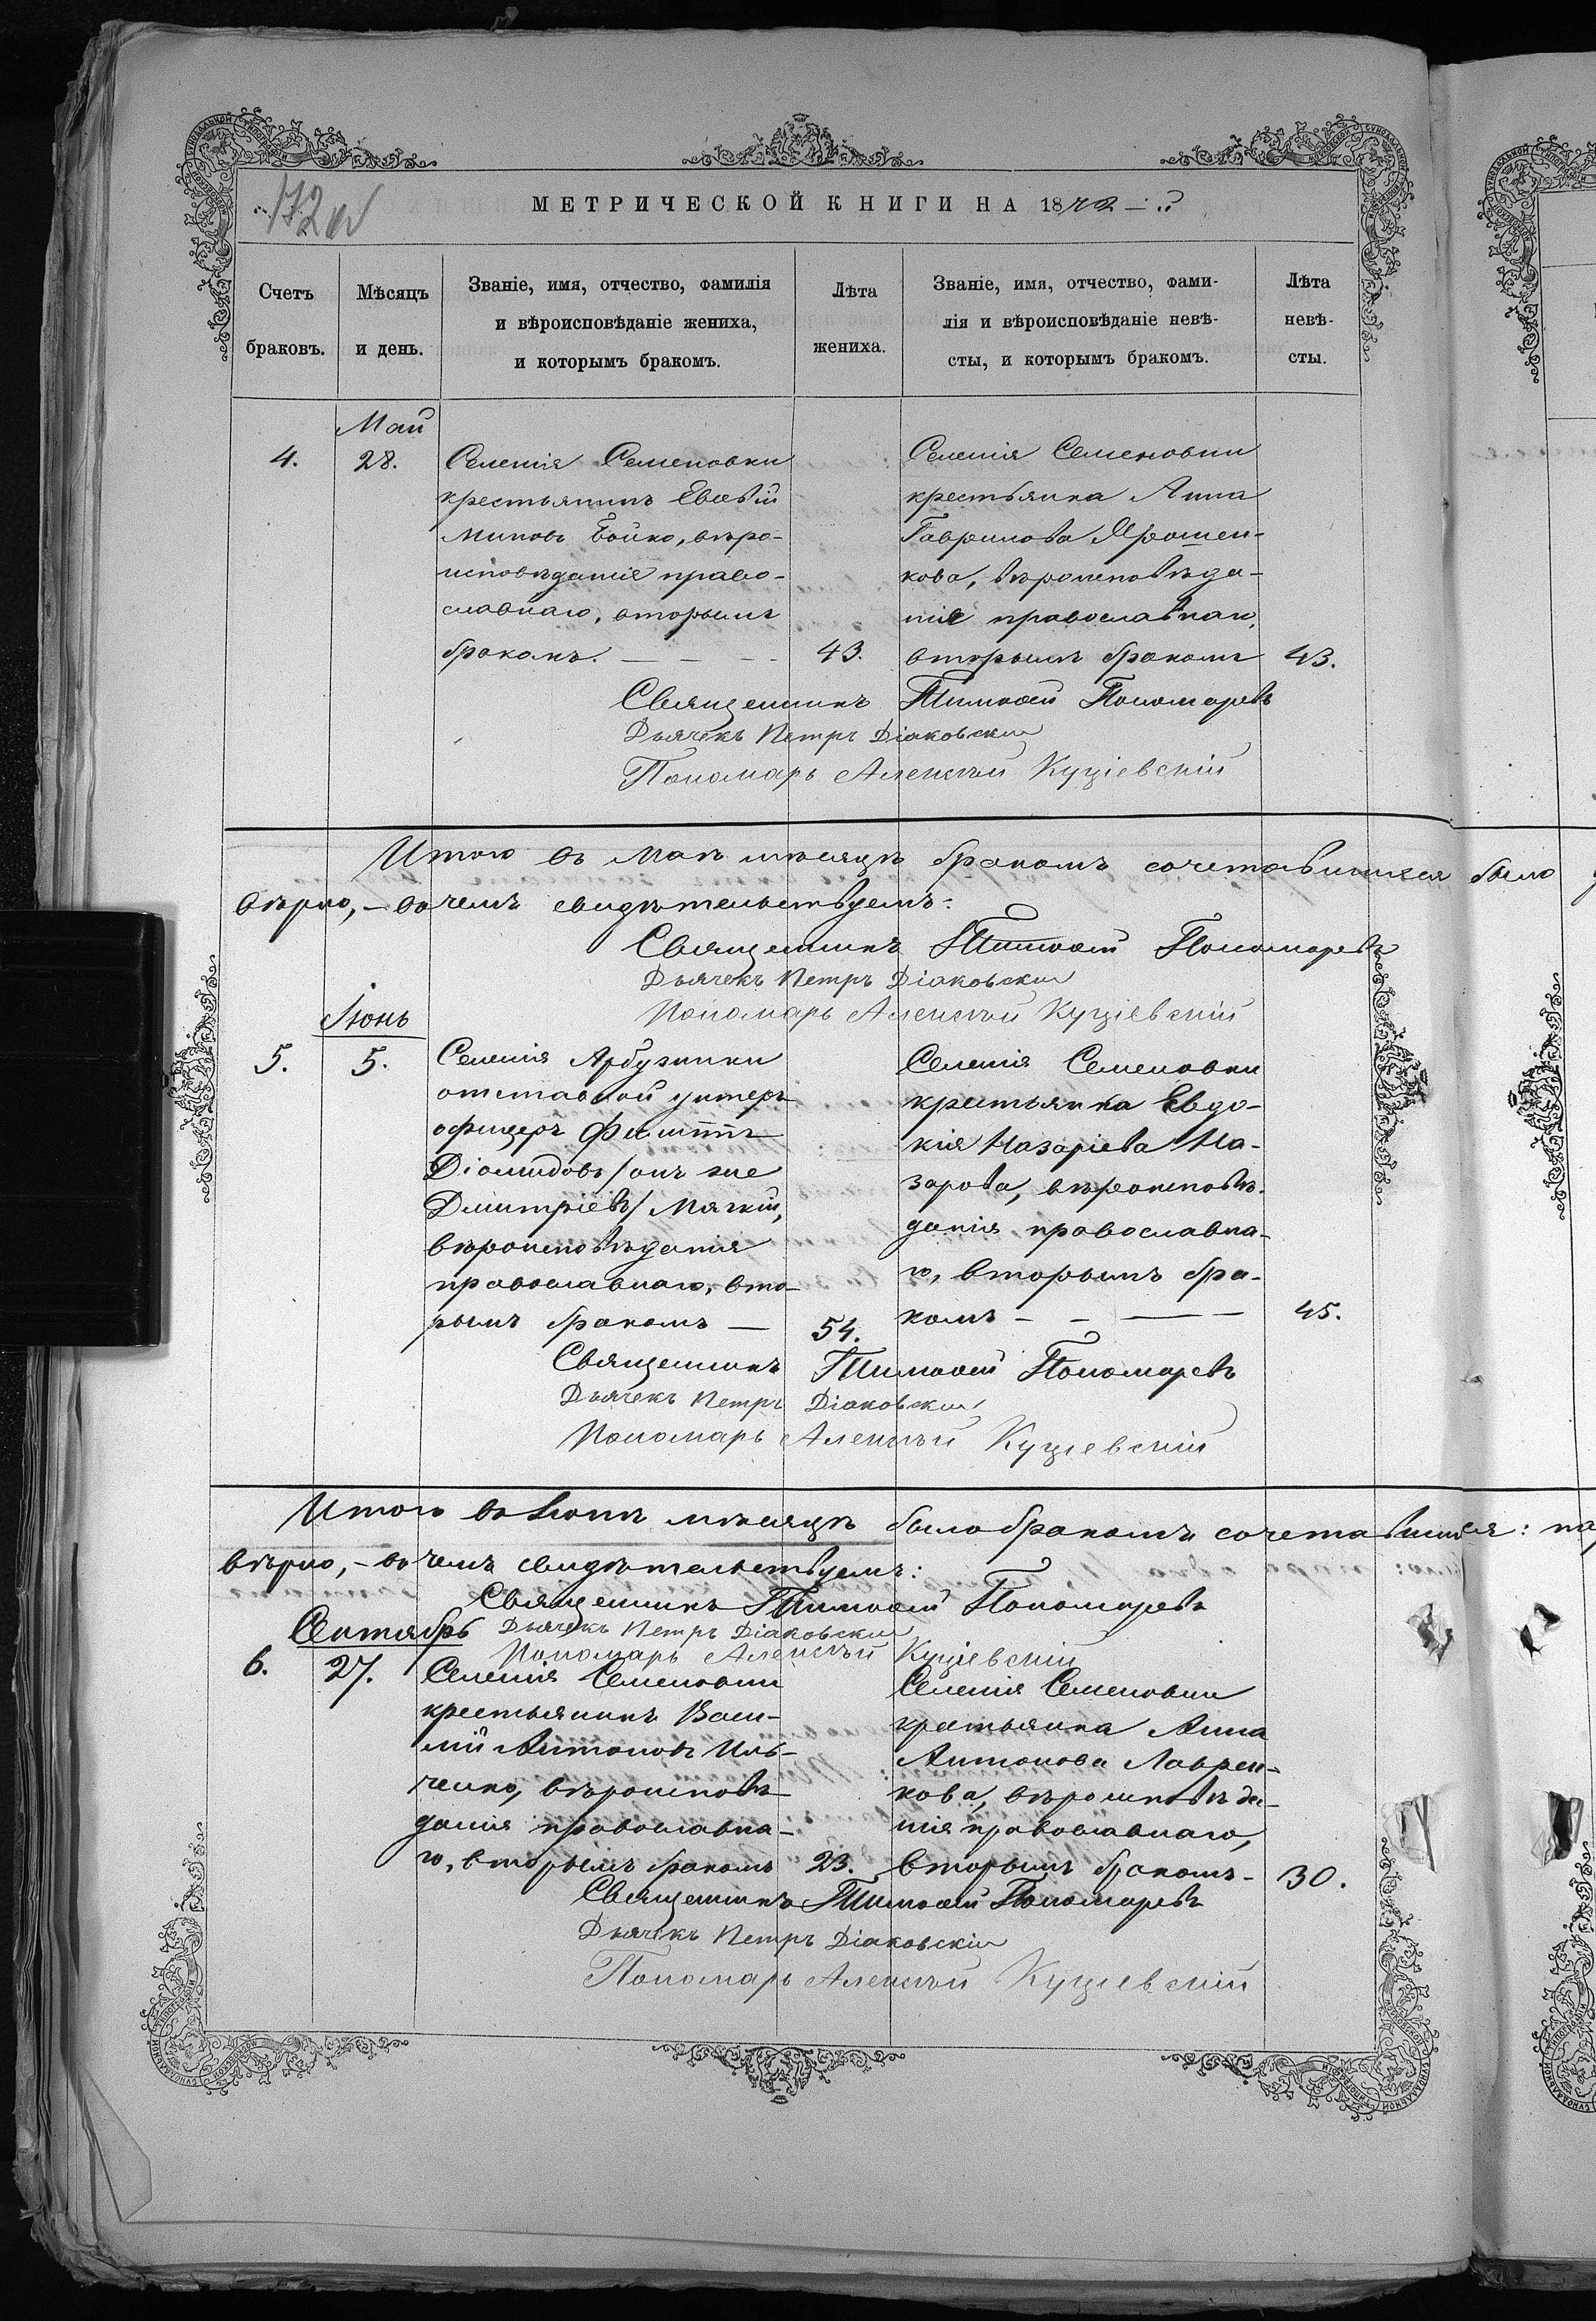 172 об
МЕТРИЧЕСКОЙ КНИГИ НА 1872-й
Счетъ браковъ.
Мѣсяцъ и день.
Званіе, имя, отчество, фамилія
и вѣроисповѣданіе жениха,
и которымъ бракомъ.
Лѣта
жениха.
Званіе, имя, отчество, фами-
лія и вѣроисповѣданіе невѣ-
сты, и которымъ бракомъ.
Лѣта
невѣ-
сты.
Май
4. 28.
Селенія Семеновки
крестьянинъ Евсѣвій
Миновъ Бойко, вѣро-
исповѣданія право-
славнаго, вторымъ
бракомъ. - - - - 43.
Селенія Семеновки
крестьянка Анна
Гаврилова Ярошен-
кова, вѣроисповѣда-
нія православнаго,
вторымъ бракомъ 43.
Священникъ Тимоѳей Пономаревъ
Дьячекъ Петръ Діаковскій
Пономарь Алексѣй Куціевскій
Итого въ Маѣ мѣсяцѣ бракомъ сочетавшихся было
вѣрно, - въ чемъ свидѣтельствуемъ:
Священникъ Тимоѳей Пономаревъ
Дьячекъ Петръ Діаковскій
Пономарь Алексѣй Куціевскій
Іюнь
5. 5.
Селенія Арбузинки
отставной унтеръ
офицеръ Филиппъ
Діомидовъ /онъ же
Дмитріевъ/ Мягкій,
вѣроисповѣданія
православнаго, вто-
рымъ бракомъ — 54.
Селенія Семеновки
крестьянка Евдо-
кія Назаріева На-
зарова, вѣроисповѣ-
данія православна-
го, вторымъ бра-
комъ - - — — 45.
Священникъ Тимоѳей Пономаревъ
Дьячекъ Петръ Діаковскій
Пономарь Алексѣй Куціевскій
Итого въ Іюнѣ мѣсяцѣ было бракомъ сочетавшихся:
вѣрно, - въ чемъ свидѣтельствуемъ:
Священникъ Тимоѳей Пономаревъ
Дьячекъ Петръ Діаковскій
Пономарь Алексѣй Куціевскій
Сентябрь
6. 27.
Селенія Семеновки
крестьянинъ Васи-
лій Антоновъ Иль-
ченко, вѣроисповѣ-
данія православна-
го, вторымъ бракомъ 23.
Селенія Семеновки
крестьянка Анна
Антонова Лаврен-
кова, вѣроисповѣда-
нія православнаго,
вторымъ бракомъ - 30.
Священникъ Тимоѳей Пономаревъ
Дьячекъ Петръ Діаковскій
Пономарь Алексѣй Куціевскій